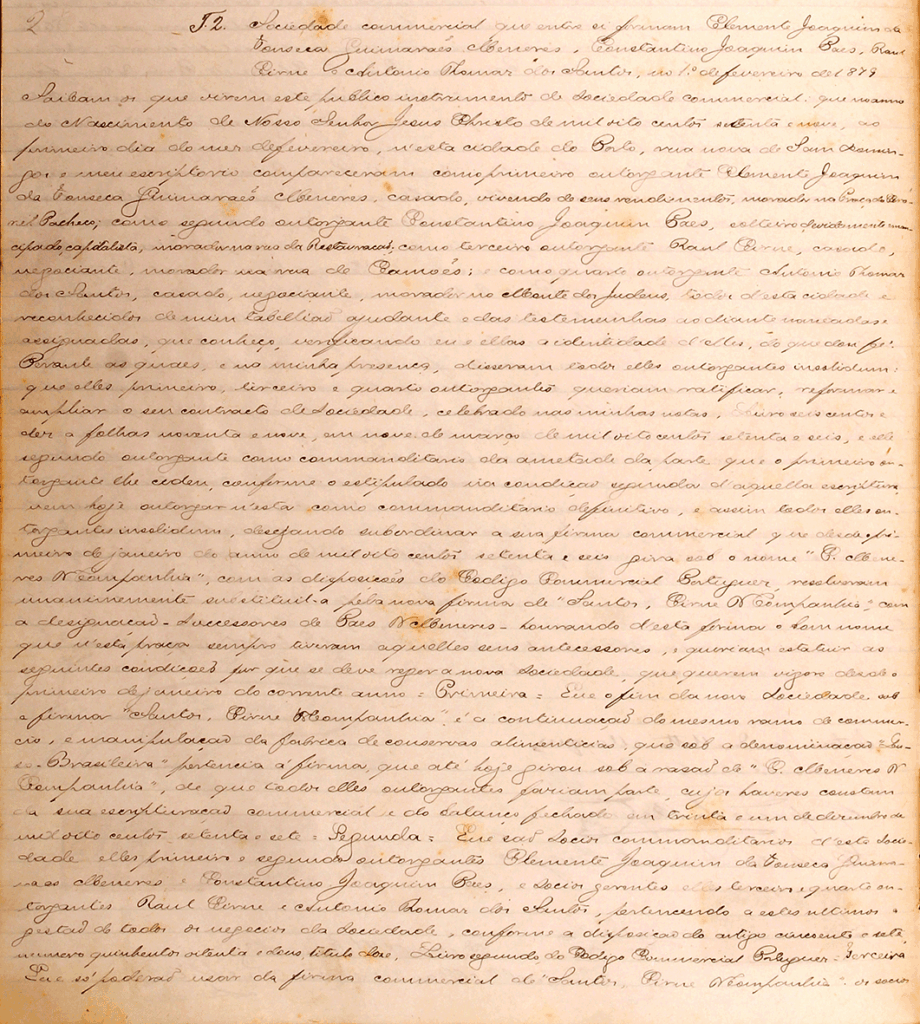 2 T. 2. Sociedade commercial que entre si firmam Clemente Joaquim da
Fonseca Guimaraẽs Meneres, Constantino Joaquim Paes, Raul
Cirne e Antonio Thomaz dos Santos, no 1.º de fevereiro de 1879
Saibam os que virem este publico instrumento de sociedade commercial: que no anno
do Nascimento de Nosso Senhor Jesus Christo de mil oito centos setenta e nove, ao
primeiro dia do mez de fevereiro, n'esta cidade do Porto, rua nova de Sam Domin-
gos e meu escriptorio compareceram como primeiro outorgante Clemente Joaquim
da Fonseca Guimaraẽs Meneres, casado, vivendo de seus rendimentos, morador na Praça do Coro-
nel Pacheco; como segundo outorgante Constantino Joaquim Paes, solteiro devidamente eman-
cipado, capitalista, morador na rua da Restauracaõ; como terceiro outorgante Raul Cirne, casado,
negociante, morador na rua de Camoẽs; e como quarto outorgante Antonio Thomaz
dos Santos, casado, negociante, morador no Monte dos Judeus, todos d'esta cidade e
reconhecidos de mim tabelliaõ ajudante e das testemunhas ao diante nomeadas e
assignadas, que conheço, verificando eu e ellas a identidade d'elles, do que dou fé:
Perante as quaes, e na minha presença, disseram todos elles outorgantes insolidum:
que elles primeiro, terceiro e quarto outorgantes queriam ratificar, reformar e
ampliar o seu contracto de sociedade, celebrado nas minhas notas, livro seis centos e
dez a folhas noventa e nove, em nove de março de mil oito centos setenta e seis, e elle
segundo outorgante como commanditario da ametade da parte que o primeiro ou-
torgante lhe cedeu, conforme o estipulado na condicaõ segunda d'aquella escriptura,
vem hoje outorgar n'esta como commanditario definitivo, e assim todos elles ou-
torgantes insolidum, desejando subordinar a sua firma commercial que desde pri-
meiro de janeiro do anno de mil oito centos setenta e seis gira sob o nome "C. Mene-
res & Companhia", com as disposicoẽs do Codigo Commercial Portuguez, resolveram
unanimemente substituil-a pela nova firma de "Santos, Cirne & Companhia" com
a designacaõ - Successores de Paes & Meneres - honrando d'esta forma o bom nome
que n'esta praça sempre tiveram aquelles seus antecessores, e queriam estatuir as
seguintes condicoẽs por que se deve reger a nova sociedade, que querem vigore desde o
primeiro de janeiro do corrente anno = Primeira = Que o fim da nova sociedade sob
a firma "Santos, Cirne & Companhia", é a continuacaõ do mesmo ramo de commer-
cio, e manipulaçaõ da fabrica de conservas alimenticias que sob a denominacaõ "Lu-
so-Brasileira" pertencia á firma, que até hoje girou sob a rasaõ de "C. Meneres &
Companhia", de que todos elles outorgantes faziam parte, cujos haveres constam
da sua escripturacaõ commercial e do balanco fechado em trinta e um de dezembro de
mil oito centos setenta e sete = Segunda = Que saõ socios commanditarios d'esta socie-
dade elles primeiro e segundo outorgantes Clemente Joaquim da Fonseca Guima-
raẽs Meneres e Constantino Joaquim Paes, e socios gerentes elles terceiro e quarto ou-
torgantes Raul Cirne e Antonio Thomaz dos Santos, pertencendo a estes ultimos a
gestaõ de todos os negocios da sociedade, conforme a disposicaõ do artigo cincoenta e sete,
numero quinhentos oitenta e dous, titulo doze, Livro segundo do Codigo Commercial Portuguez = Terceira
Que só poderaõ usar da firma commercial de "Santos, Cirne & Companhia" os socios